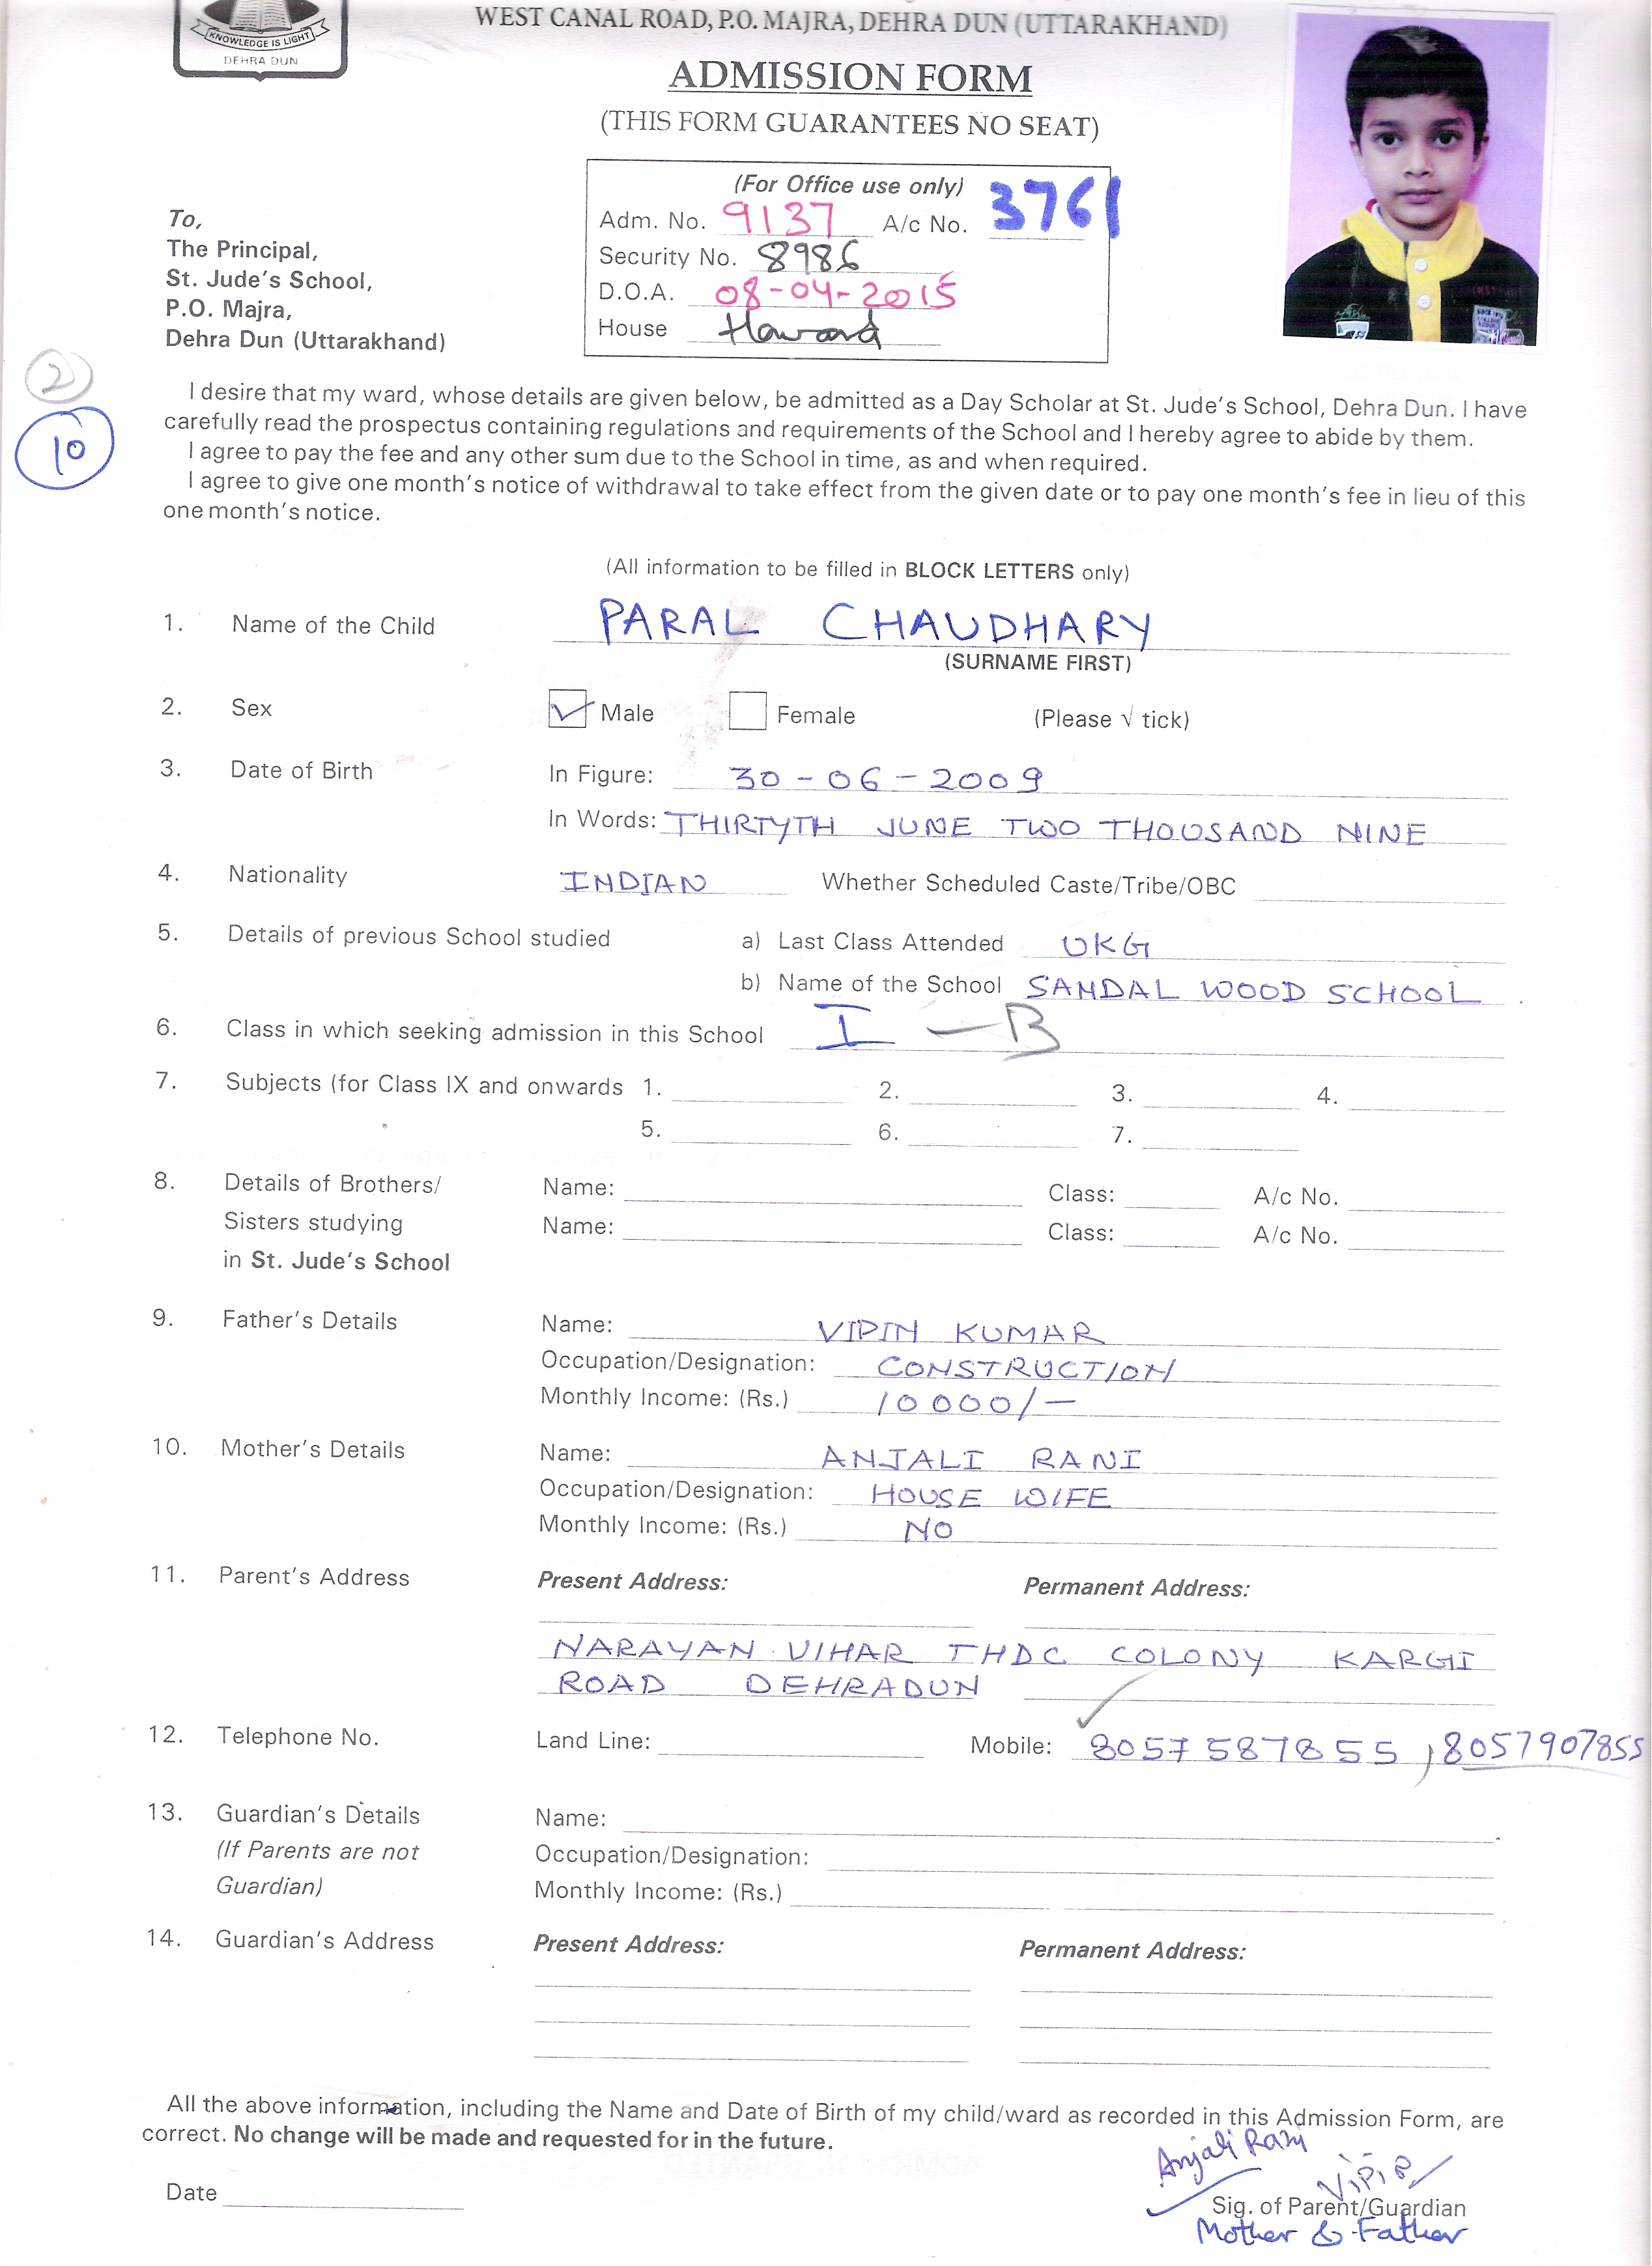 KNOWLEDGE IS LIGHT
DEHRA DUN
WEST CANAL ROAD, P.O. MAJRA, DEHRA DUN (UTTARAKHAND)
ADMISSION FORM
(THIS FORM GUARANTEES NO SEAT)
(For Office use only)
Adm. No. 9137 A/c No. 3761
Security No. 8986
D.O.A. 08-04-2015
House Howard
To,
The Principal,
St. Jude's School,
P.O. Majra,
Dehra Dun (Uttarakhand)
2
10
I desire that my ward, whose details are given below, be admitted as a Day Scholar at St. Jude's School, Dehra Dun. I have
carefully read the prospectus containing regulations and requirements of the School and I hereby agree to abide by them.
I agree to pay the fee and any other sum due to the School in time, as and when required.
I agree to give one month's notice of withdrawal to take effect from the given date or to pay one month's fee in lieu of this
one month's notice.
(All information to be filled in BLOCK LETTERS only)
1. Name of the Child PARAL CHAUDHARY
(SURNAME FIRST)
2. Sex Male Female (Please √ tick)
3. Date of Birth In Figure: 30-06-2009
In Words: THIRTYTH JUNE TWO THOUSAND NINE
4. Nationality INDIAN Whether Scheduled Caste/Tribe/OBC
5. Details of previous School studied a) Last Class Attended UKG
b) Name of the School SANDAL WOOD SCHOOL
6. Class in which seeking admission in this School I - B
7. Subjects (for Class IX and onwards 1. 2. 3. 4.
5. 6. 7.
8. Details of Brothers/ Name: Class: A/c No.
Sisters studying Name: Class: A/c No.
in St. Jude's School
9. Father's Details Name: VIPIN KUMAR
Occupation/Designation: CONSTRUCTION
Monthly Income: (Rs.) 10000/-
10. Mother's Details Name: ANJALI RANI
Occupation/Designation: HOUSE WIFE
Monthly Income: (Rs.) NO
11. Parent's Address Present Address: Permanent Address:
NARAYAN VIHAR THDC COLONY KARGI
ROAD DEHRADUN
12. Telephone No. Land Line: Mobile: 8057587855, 8057907855
13. Guardian's Details Name:
(If Parents are not Occupation/Designation:
Guardian) Monthly Income: (Rs.)
14. Guardian's Address Present Address: Permanent Address:
All the above information, including the Name and Date of Birth of my child/ward as recorded in this Admission Form, are
correct. No change will be made and requested for in the future.
Anjali Rani
Date
Sig. of Parent/Guardian
Mother & Father